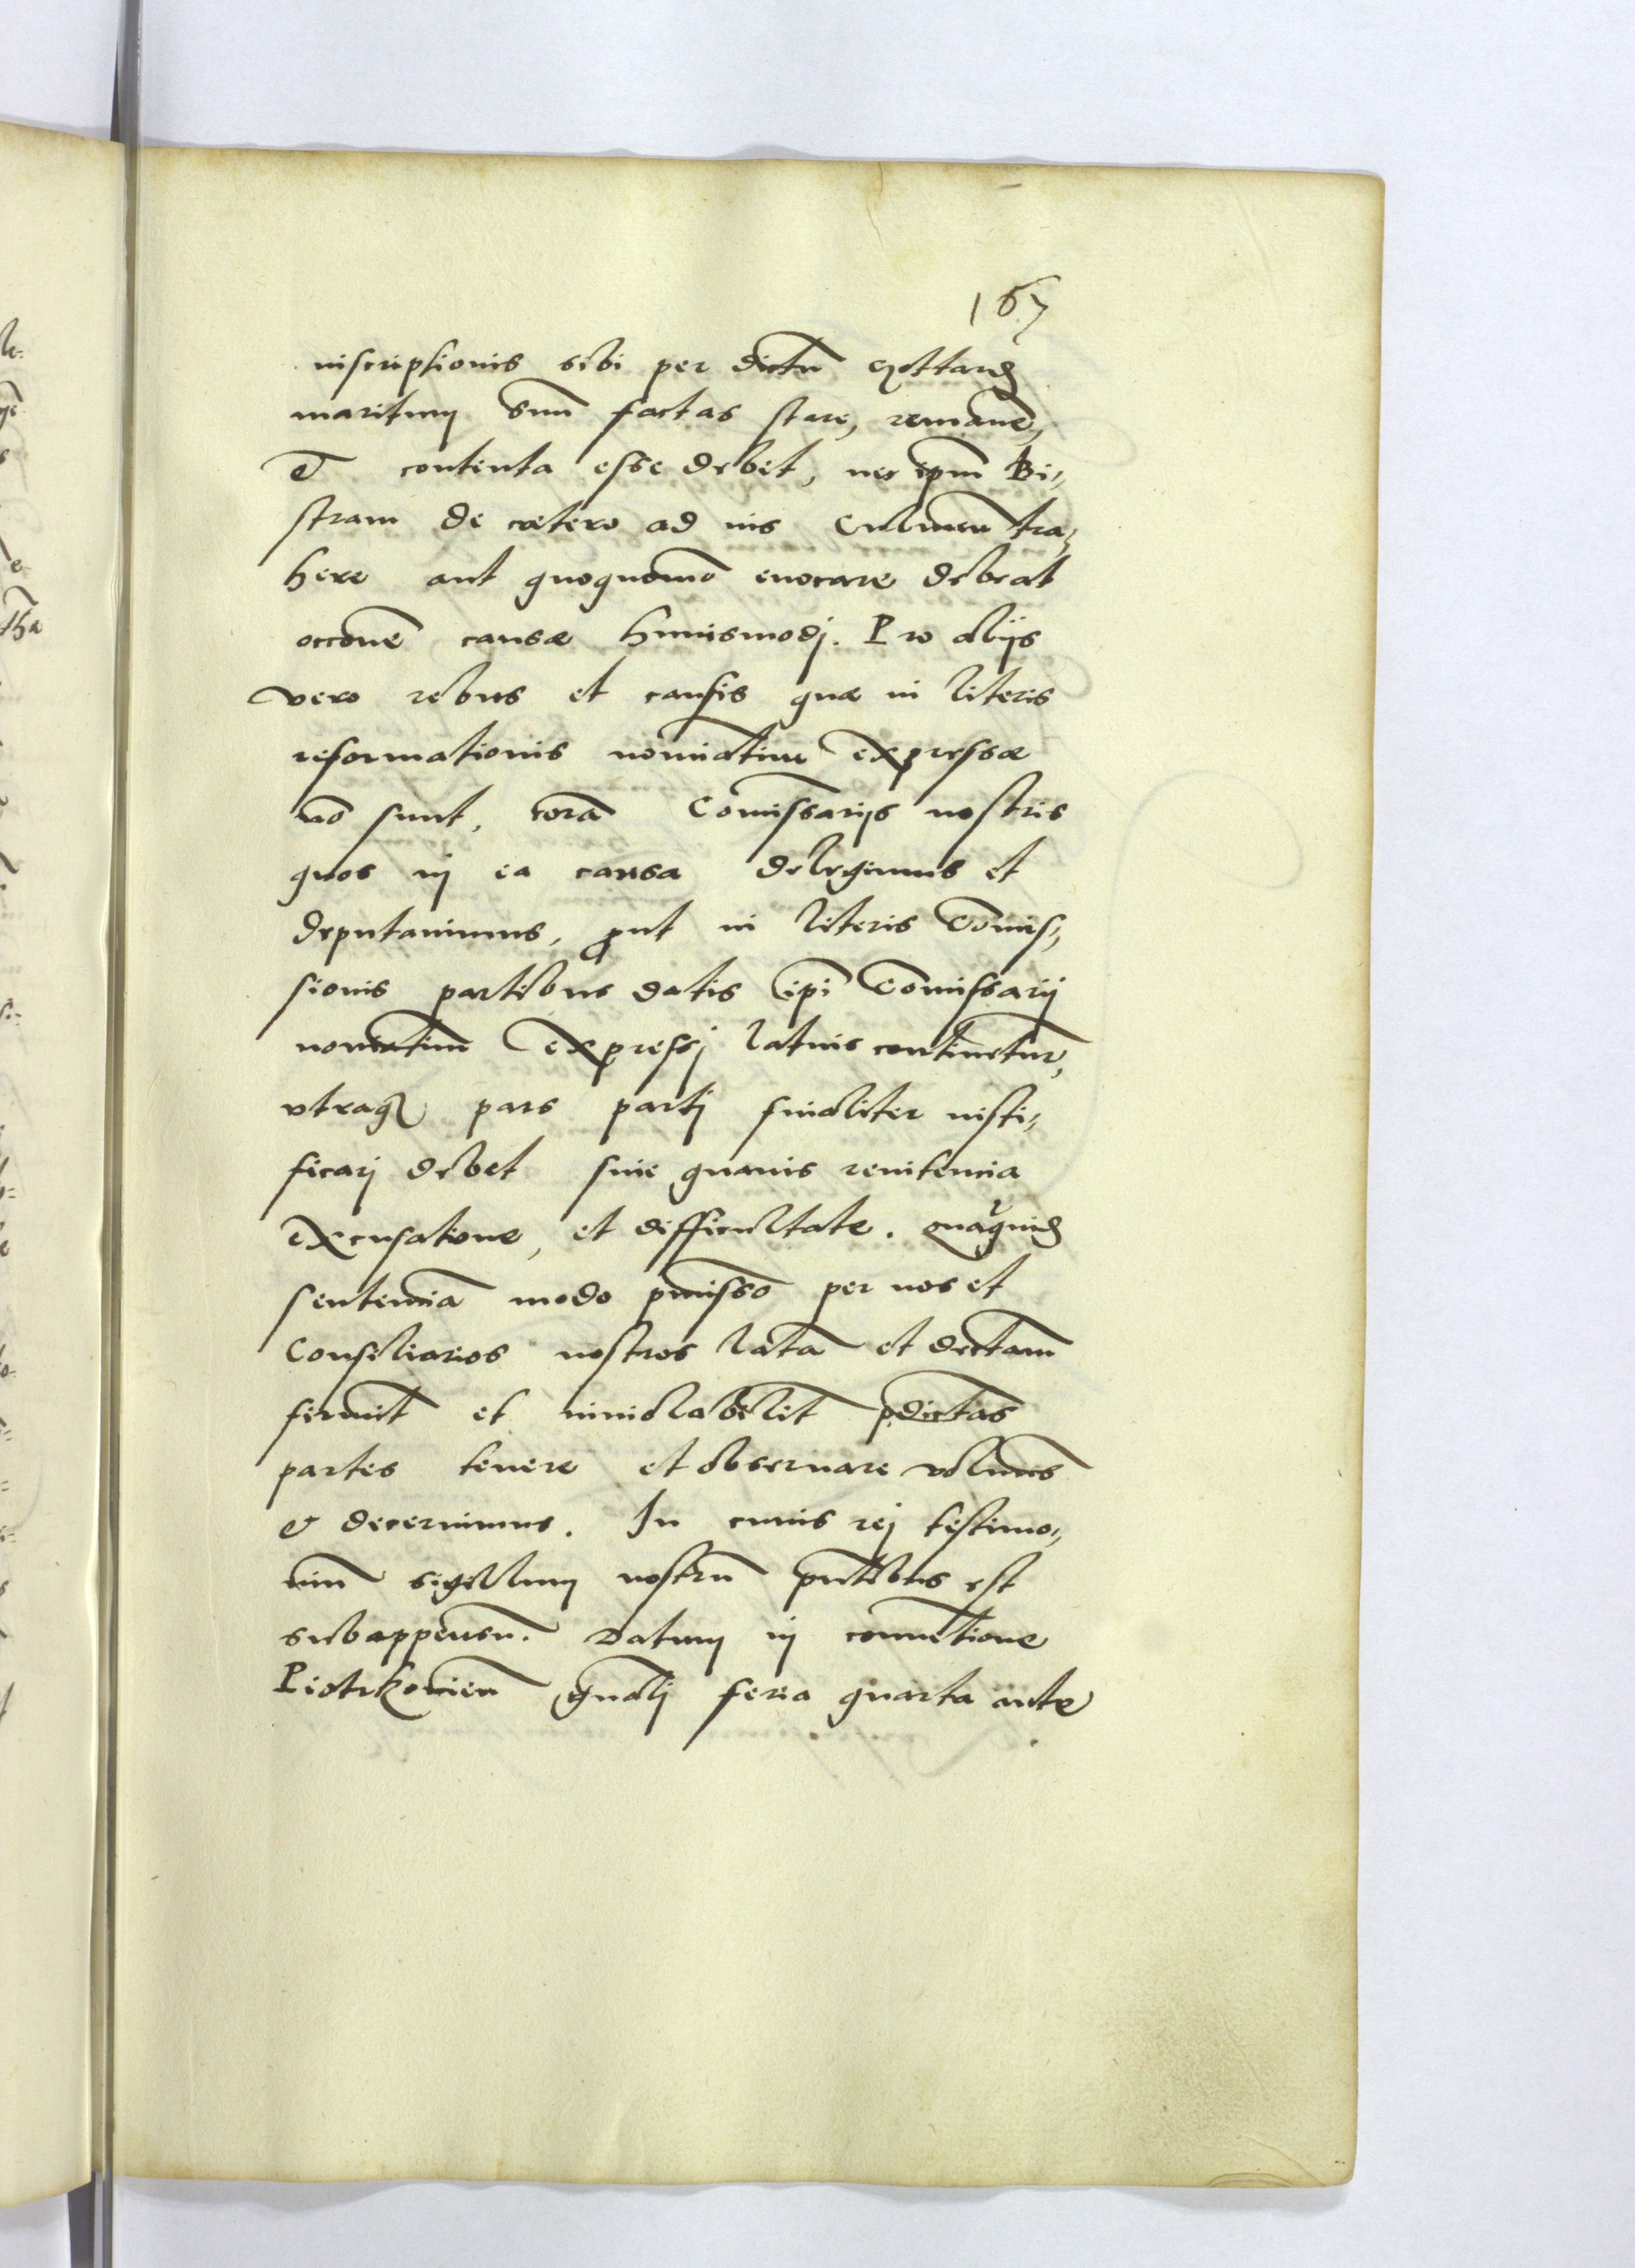 167
inscriptionis sibi per dictū Gottard
maritum suū factas stare, remanē,
et contenta esse debet, nec ipm̄ Bi„
stram de cætero ad ius Culmen̄ tra„
here aut quoquomō euocare debeat
occōne causæ huiusmodj. Pro alijs
vero rebus et causis quæ in literis
reformationis nominatim expressæ
nō sunt, corā Com̄issarijs nostris
quos in ea causa delegimus et
deputauimus, prout in literis Com̄is„
sionis partibus datis ipi Com̄issarij
nominatim expressj latius continetur,
vtraq₃ pars partj finaliter iusti„
ficarj debet sine quauis renitencia
excusatione, et difficultate. Quaquid
sentenciā modo p̄misso per nos et
Consiliarios nostros latā et dictam
firmit̄ et inuiolabilit̄ p̄dictas
partes tenere et obseruare volumus
et decernimus. In cuius rej testimo„
niū sigillum nostrū pn̄tibus est
subappensū. Datum in conuentione
Piotrkouien̄ gn̄alj feria quarta ante